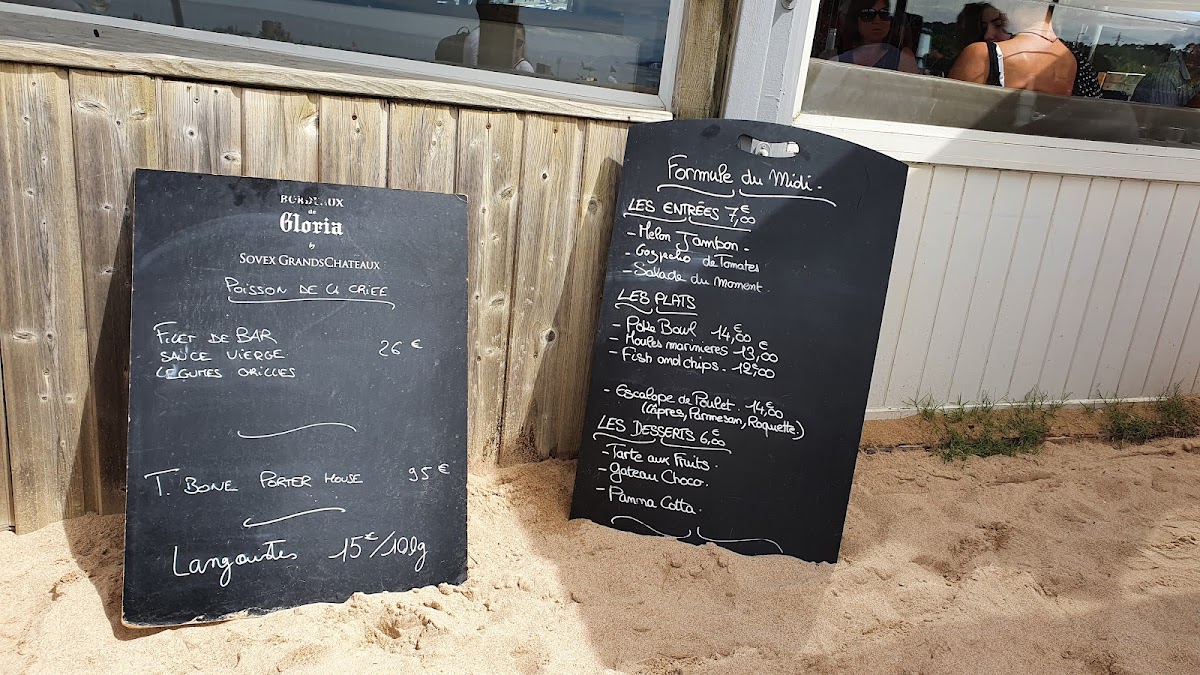 BORDEAUX
de
Gloria
by
SOVEX GRANDSCHATEAUX
POISSON DE LA CRIEE
FILET DE BAR
SAUCE VIERGE 26 €
LEGUMES GRILLES
T. BONE PORTER HOUSE 95 €
Langoustes 15€/100g
Formule du Midi.
LES ENTRÉES 7,00€
- Melon Jambon.
- Gazpacho de Tomates
- Salade du moment.
LES PLATS
- Poke Bowl 14,00€
- Moules marinieres 13,00€
- Fish and chips. 12,00€
- Escalope de Poulet. 14,00€
(Câpres, Parmesan, Roquette.)
LES DESSERTS 6,00€
- Tarte aux Fruits.
- Gateau Choco.
- Panna Cotta.